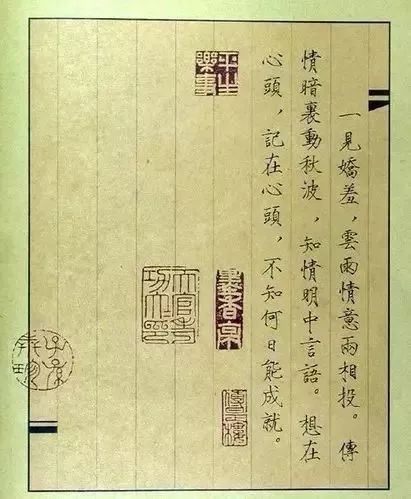 一見嬌羞，雲雨情意兩相投。傳
情暗裏動秋波，知情明中言語。想在
心頭，記在心頭，不知何日能成就。
平生
樂事